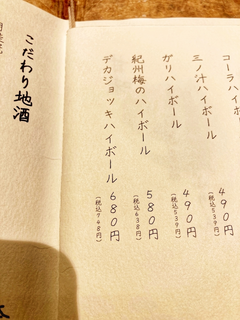 コーラハイボ
490円
(税込539円)
三ノ汁ハイボール
490円
(税込539円)
ガリハイボール
紀州梅のハイボール
580円
(税込638円)
デカジョッキハイボール
680円
(税込748円)
こだわり地酒